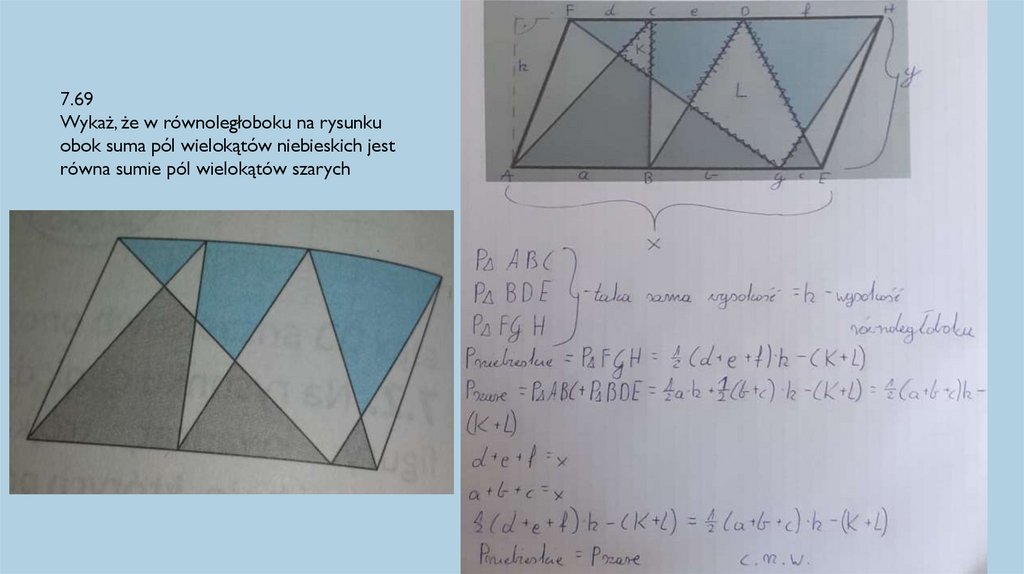 7.69
Wykaż, że w równoległoboku na rysunku
obok suma pól wielokątów niebieskich jest
równa sumie pól wielokątów szarych
F d C e D f H
K
h
L
y
A a B b G c E
x
P△ ABC
P△ BDE
P△ FGH
- taka sama wysokość = h - wysokość
równoległoboku
Pniebieskie = P△FGH = 1/2 (d+e+f)·h - (K+L)
Pszare = P△ABC + P△BDE = 1/2 a·h + 1/2 (b+c)·h - (K+L) = 1/2 (a+b+c)h -
(K+L)
d+e+f = x
a+b+c = x
1/2 (d+e+f)·h - (K+L) = 1/2 (a+b+c)·h - (K+L)
Pniebieskie = Pszare c.n.w.